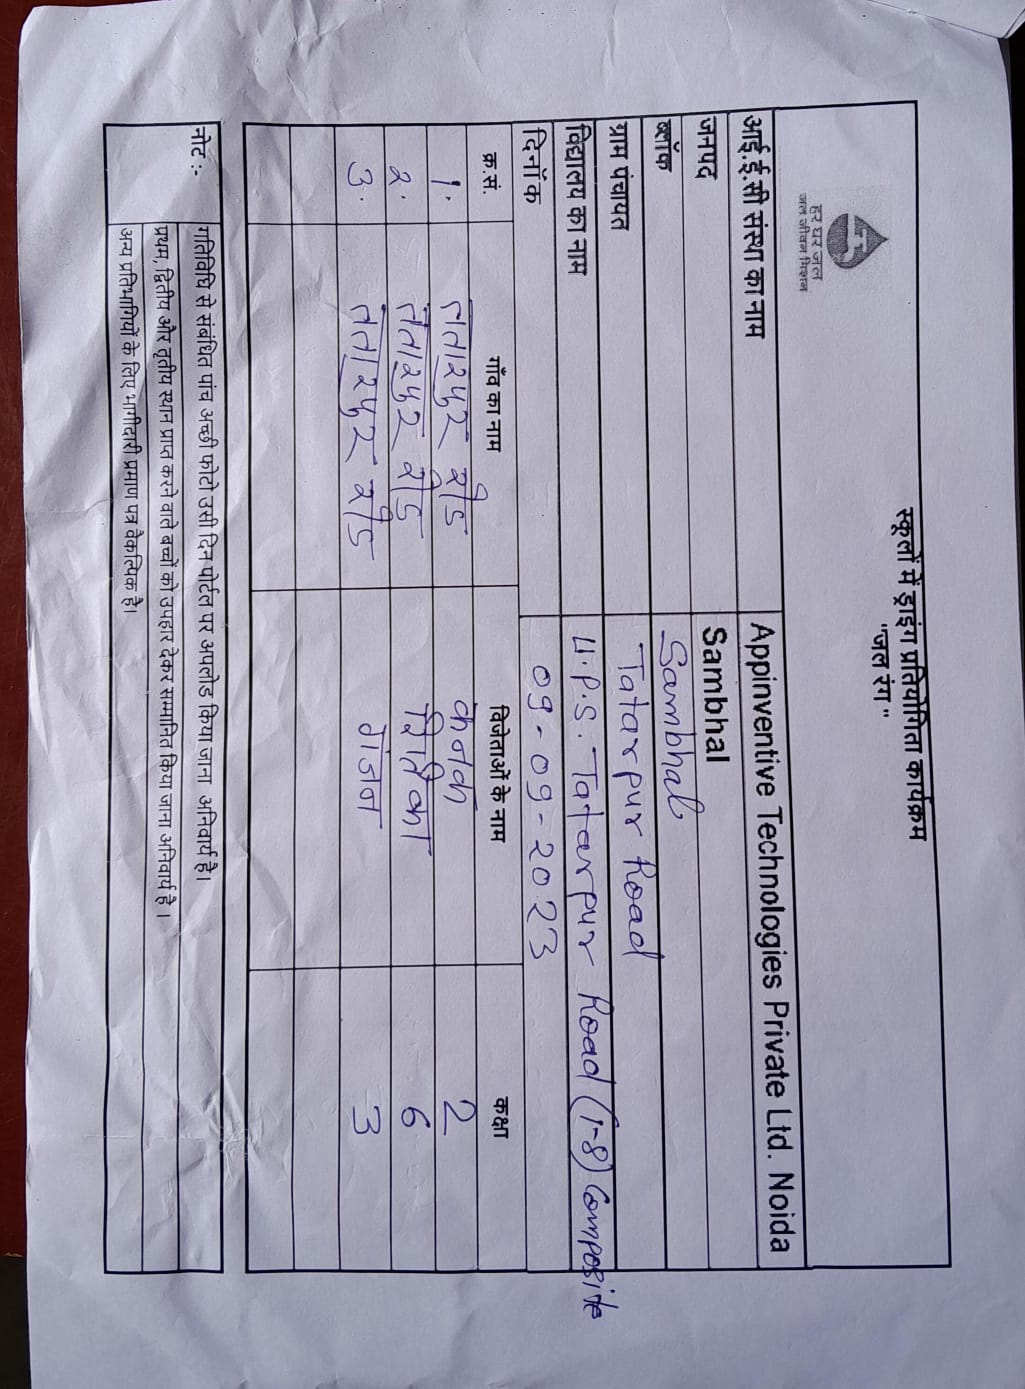 स्कूलों में ड्राइंग प्रतियोगिता कार्यक्रम
"जल रंग"
हर घर जल
जल जीवन मिशन
आई.ई.सी संस्था का नाम Appinventive Technologies Private Ltd. Noida
जनपद Sambhal
ब्लॉक Sambhal
ग्राम पंचायत Tatarpur Road
विद्यालय का नाम U.P.S. Tatarpur Road (1-8) Composite
दिनॉक 09-09-2023
क्र.सं. गाँव का नाम विजेताओं के नाम कक्षा
1. ततारपुर रोड कनक 2
2. ततारपुर रोड रितिका 6
3. ततारपुर रोड 3
नोट :- गतिविधि से संबंधित पांच अच्छी फोटो उसी दिन पोर्टल पर अपलोड किया जाना अनिवार्य है।
प्रथम, द्वितीय और तृतीय स्थान प्राप्त करने वाले बच्चों को उपहार देकर सम्मानित किया जाना अनिवार्य है ।
अन्य प्रतिभागियों के लिए भागीदारी प्रमाण पत्र वैकल्पिक है।